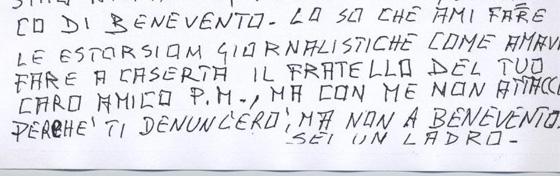 CO DI BENEVENTO. LO SO CHE AMI FARE
LE ESTORSIONI GIORNALISTICHE COME AMAVI
FARE A CASERTA IL FRATELLO DEL TUO
CARO AMICO P.M., MA CON ME NON ATTACC
PERCHE' TI DENUNCERO', MA NON A BENEVENTO.
SEI UN LADRO.